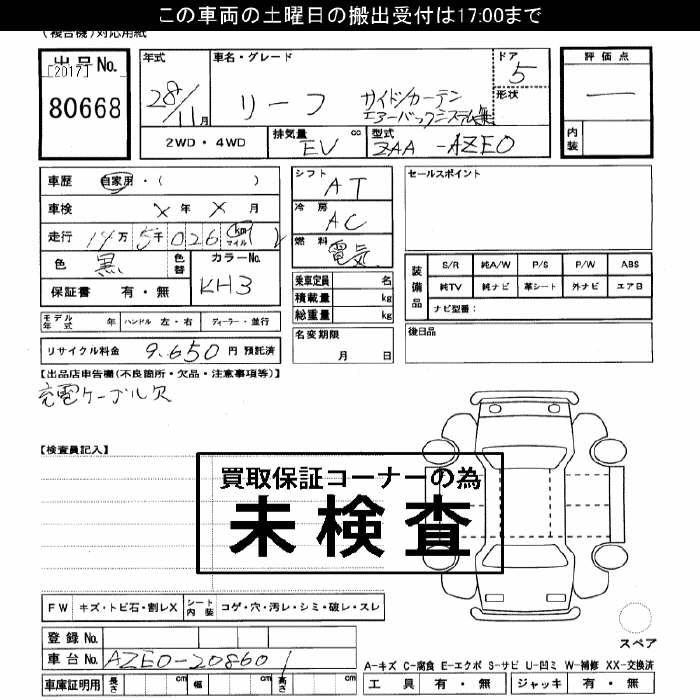 この車両の土曜日の搬出受付は17:00まで
(複合機)対応用紙
出品No.
[2017]
80668
年式
28/11月
車名・グレード
リーフ
サイド/カーテン
エアーバックシステム無
ドア
5
形状
評価点
—
内装
2WD・4WD
排気量 cc
EV
型式
ZAA-AZE0
車歴 自家用・( )
車検 X年 X月
走行 14万5千026 km マイル
色 黒
色替
カラーNo.
KH3
保証書 有・無
シフト
AT
冷房
AC
燃料
電気
乗車定員 名
積載量 kg
総重量 kg
セールスポイント
装備品
S/R 純A/W P/S P/W ABS
純TV 純ナビ 革シート 外ナビ エアB
ナビ型番:
モデル年式 年 ハンドル 左・右 ディーラー・並行
名変期限
月 日
後日品
リサイクル料金 9.650 円 預託済
【出品店申告欄(不良箇所・欠品・注意事項等)】
充電ケーブル欠
【検査員記入】
買取保証コーナーの為
未検査
FW キズ・トビ石・割レX シート内装 コゲ・穴・汚レ・シミ・破レ・スレ
登録No.
車台No. AZE0-208601
車庫証明用 長さ cm 幅 cm 高さ cm
スペア
A-キズ C-腐食 E-エクボ S-サビ U-凹ミ W-補修 XX-交換済
工具 有・無 ジャッキ 有・無